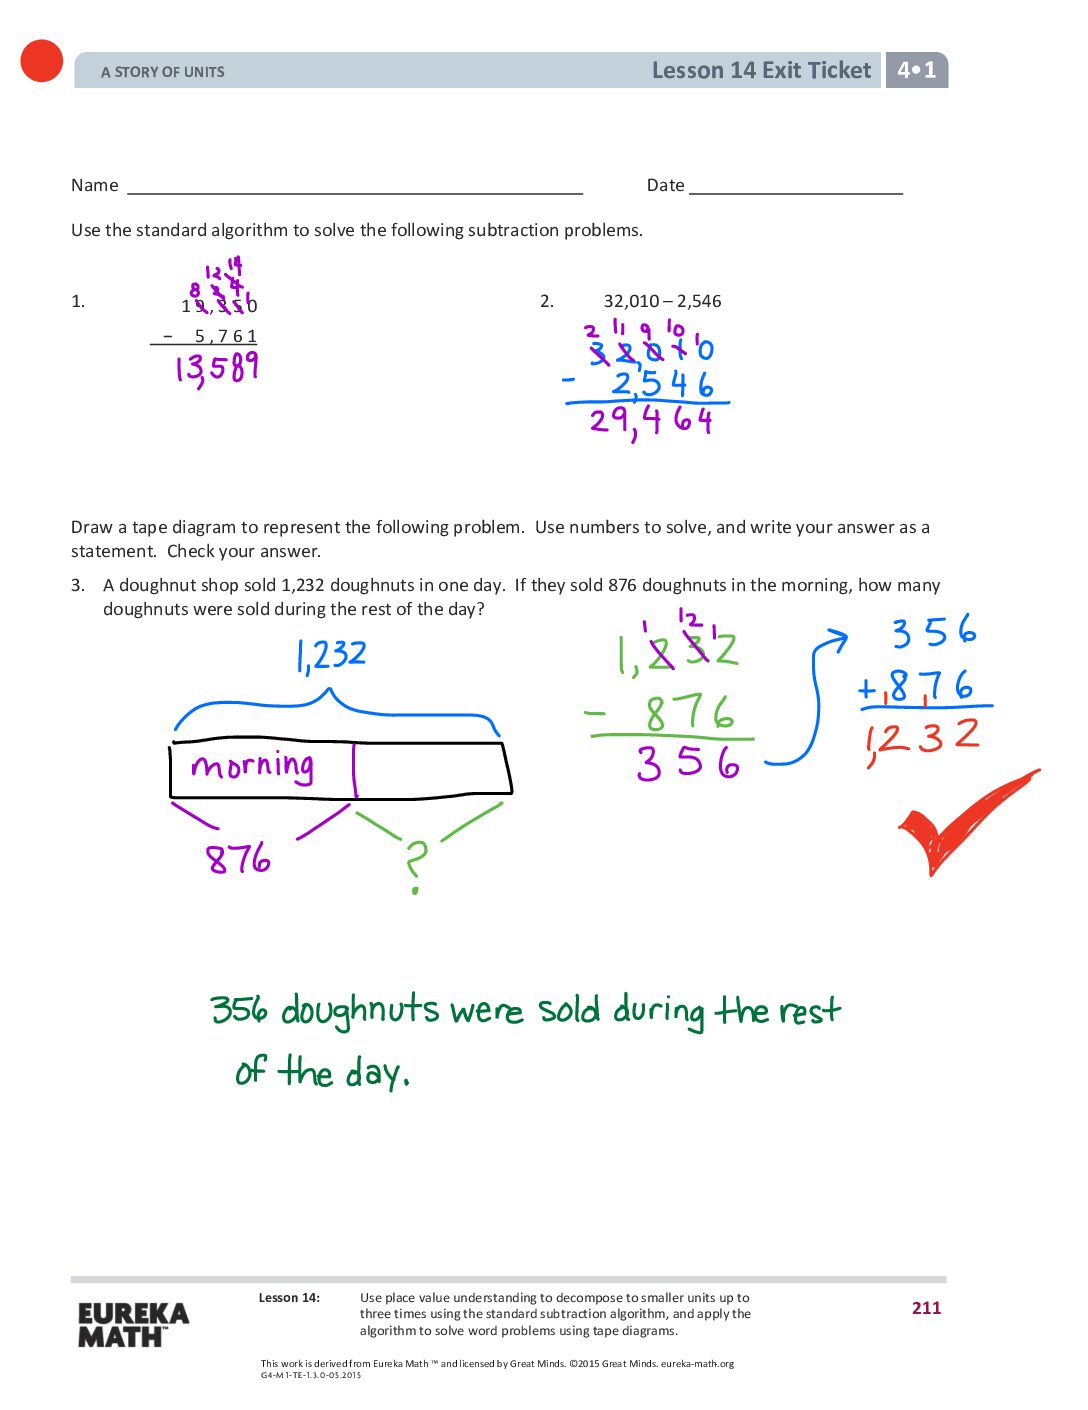 A STORY OF UNITS
Lesson 14 Exit Ticket 4•1
Name
Date
Use the standard algorithm to solve the following subtraction problems.
12 14
8 2 4 1
1. 19,350
− 5,761
13,589
2. 32,010 – 2,546
2 11 9 10 1
32,010
- 2,546
29,464
Draw a tape diagram to represent the following problem. Use numbers to solve, and write your answer as a
statement. Check your answer.
3. A doughnut shop sold 1,232 doughnuts in one day. If they sold 876 doughnuts in the morning, how many
doughnuts were sold during the rest of the day?
1,232
morning
876
?
1 12 1
1,232
- 876
356
356
+ 876
1 1
1,232
356 doughnuts were sold during the rest
of the day.
EUREKA
MATH™
Lesson 14:
Use place value understanding to decompose to smaller units up to
three times using the standard subtraction algorithm, and apply the
algorithm to solve word problems using tape diagrams.
211
This work is derived from Eureka Math ™ and licensed by Great Minds. ©2015 Great Minds. eureka-math.org
G4-M1-TE-1.3.0-05.2015